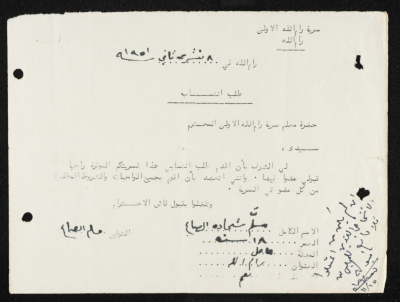 سرية رام الله الاولى
رام الله
رام الله في ٨ تشرين ثاني ١٩٥١
طلب انتساب
حضرة معلم سرية رام الله الاولى المحترم
سيدي ،
لي الشرف بأن اقدم طلب انتسابي هذا لسريتكم الموقرة راجيا
قبولي عضوا فيها . وانني اتعهد بأن اقوم بجميع الواجبات والشروط
من كل عضو في السرية .
وتفضلوا بقبول فائق الاحترام
الاسم الكامل سلم شحاده الصباغ التوقيع سلم الصباغ
العمر ١٨ سنة
المهنة عامل
العنوان رام الله
نعم